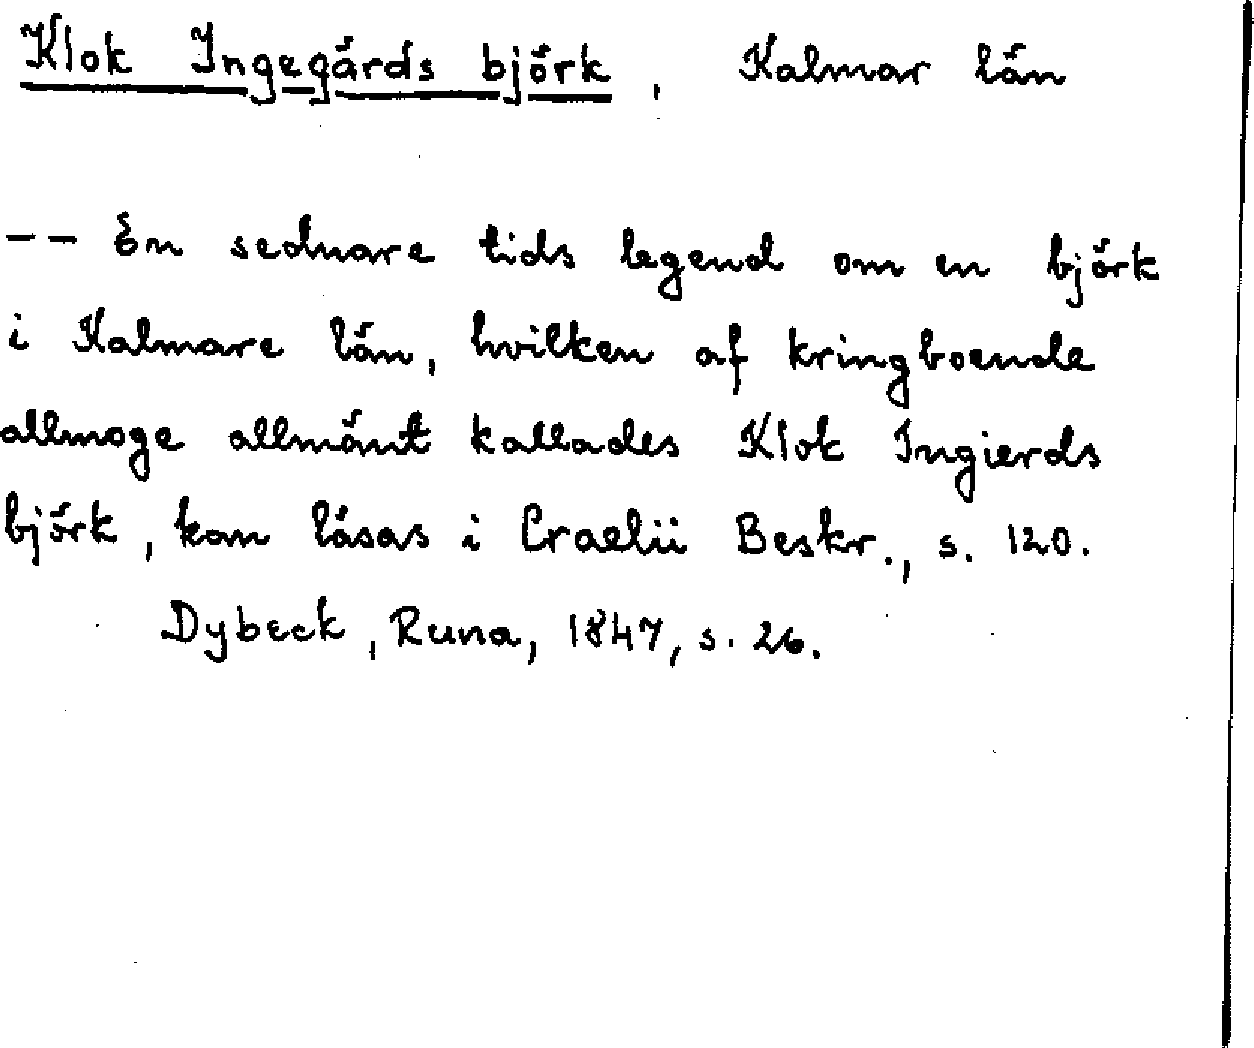 Klok Ingegärds björk, Kalmar län
-- En sednare tids legend om en björk
i Kalmare län, hvilken af kringboende
allmoge allmänt kallades Klok Ingierds
björk, kan läsas i Craelii Beskr., s. 120.
Dybeck, Runa, 1847, s. 26.